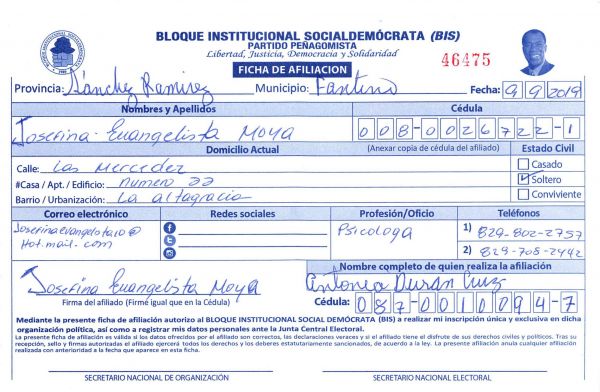 BLOQUE INSTITUCIONAL SOCIALDEMÓCRATA (BIS)
PARTIDO PEÑAGOMISTA
Libertad, Justicia, Democracia y Solidaridad
FICHA DE AFILIACION
46475
Provincia: Sánchez Ramirez Municipio: Fantino Fecha: 9 9 2019
Nombres y Apellidos Cédula
Josefina Evangelista Moya 008-0026722-1
Domicilio Actual (Anexar copia de cédula del afiliado) Estado Civil
Calle: Las Mercedes Casado
#Casa / Apt. / Edificio: numero 22 Soltero
Barrio / Urbanización: La altagracia Conviviente
Correo electrónico Redes sociales Profesión/Oficio Teléfonos
Josefinaevangelota10@ Psicologa 1) 829-802-2757
Hot.mail.com 2) 829-708-2442
Nombre completo de quien realiza la afiliación
Josefina Evangelista Moya Antonia Durán Cruz
Firma del afiliado (Firme igual que en la Cédula) Cédula: 087-0010094-7
Mediante la presente ficha de afiliación autorizo al BLOQUE INSTITUCIONAL SOCIAL DEMÓCRATA (BIS) a realizar mi inscripción única y exclusiva en dicha
organización política, así como a registrar mis datos personales ante la Junta Central Electoral.
La presente ficha de afiliación es válida si los datos ofrecidos por el afiliado son correctos, las declaraciones veraces y si el afiliado tiene el disfrute de sus derechos civiles y políticos. Tras su
recepción, sello y firmas autorizadas el afiliado ejercerá todos los derechos y los deberes estatutariamente sancionados, de acuerdo a la ley. La presente afiliación anula cualquier afiliación
realizada con anterioridad a la fecha que aparece en esta ficha.
SECRETARIO NACIONAL DE ORGANIZACIÓN SECRETARIO NACIONAL ELECTORAL